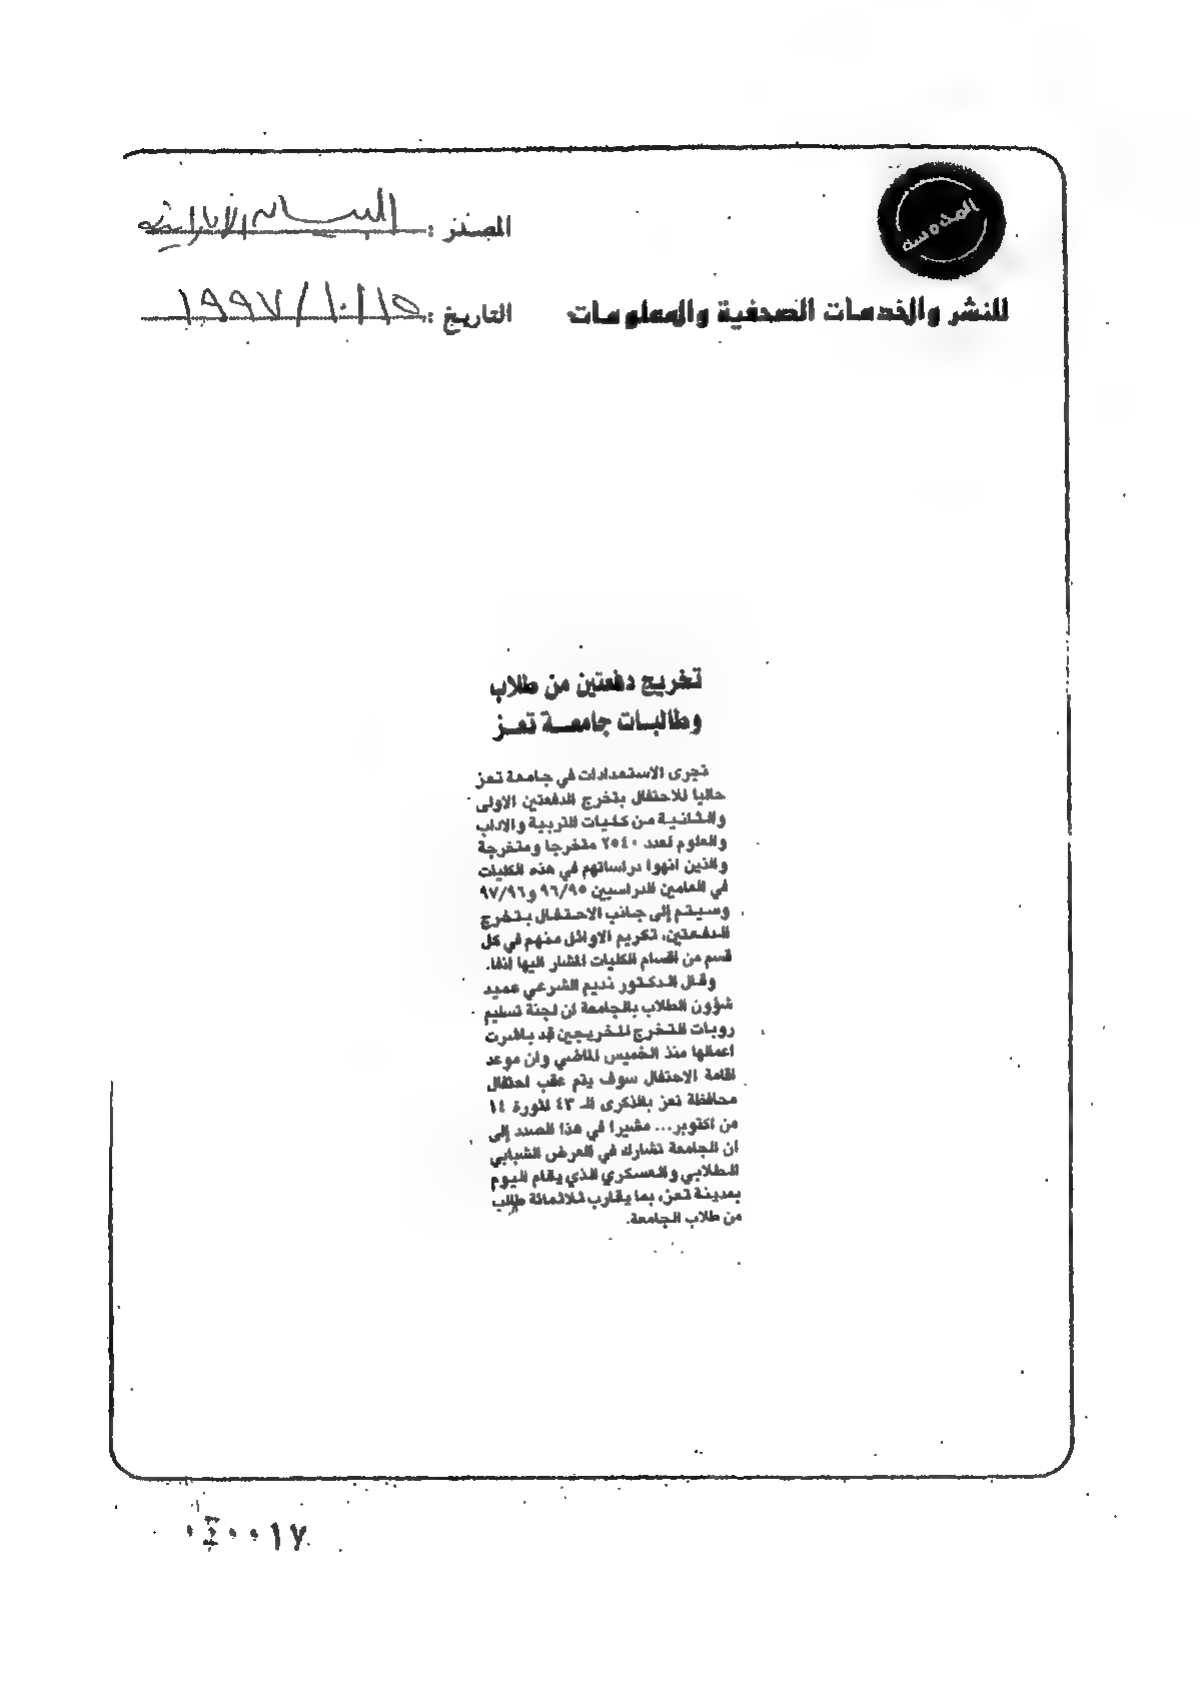 المصدر : البيان الاماراتية
للنشر والخدمات الصحفية والمعلومات
التاريخ : ١٩٩٧/١٠/١٥
تخريج دفعتين من طلاب
وطالبات جامعة تعز
تجرى الاستعدادات في جامعة تعز
حاليا للاحتفال بتخرج الدفعتين الاولى
والثانية من كليات التربية والاداب
والعلوم لعدد ٢٥٤٠ متخرجا ومتخرجة
والذين انهوا دراساتهم في هذه الكليات
في العامين الدراسيين ٩٦/٩٥ و٩٧/٩٦
وسيتم إلى جانب الاحتفال بتخرج
الدفعتين، تكريم الاوائل منهم في كل
قسم من اقسام الكليات المشار اليها انفا.
وقال الدكتور نديم الشرعي عميد
شؤون الطلاب بالجامعة ان لجنة تسليم
روبات التخرج للخريجين قد باشرت
اعمالها منذ الخميس الماضي وان موعد
اقامة الاحتفال سوف يتم عقب احتفال
محافظة تعز بالذكرى الـ ٤٣ لثورة ١٤
من اكتوبر... مشيرا في هذا الصدد إلى
ان الجامعة تشارك في العرض الشبابي
الطلابي والعسكري الذي يقام اليوم
بمدينة تعز، بما يقارب ثلاثمائة طالب
من طلاب الجامعة.